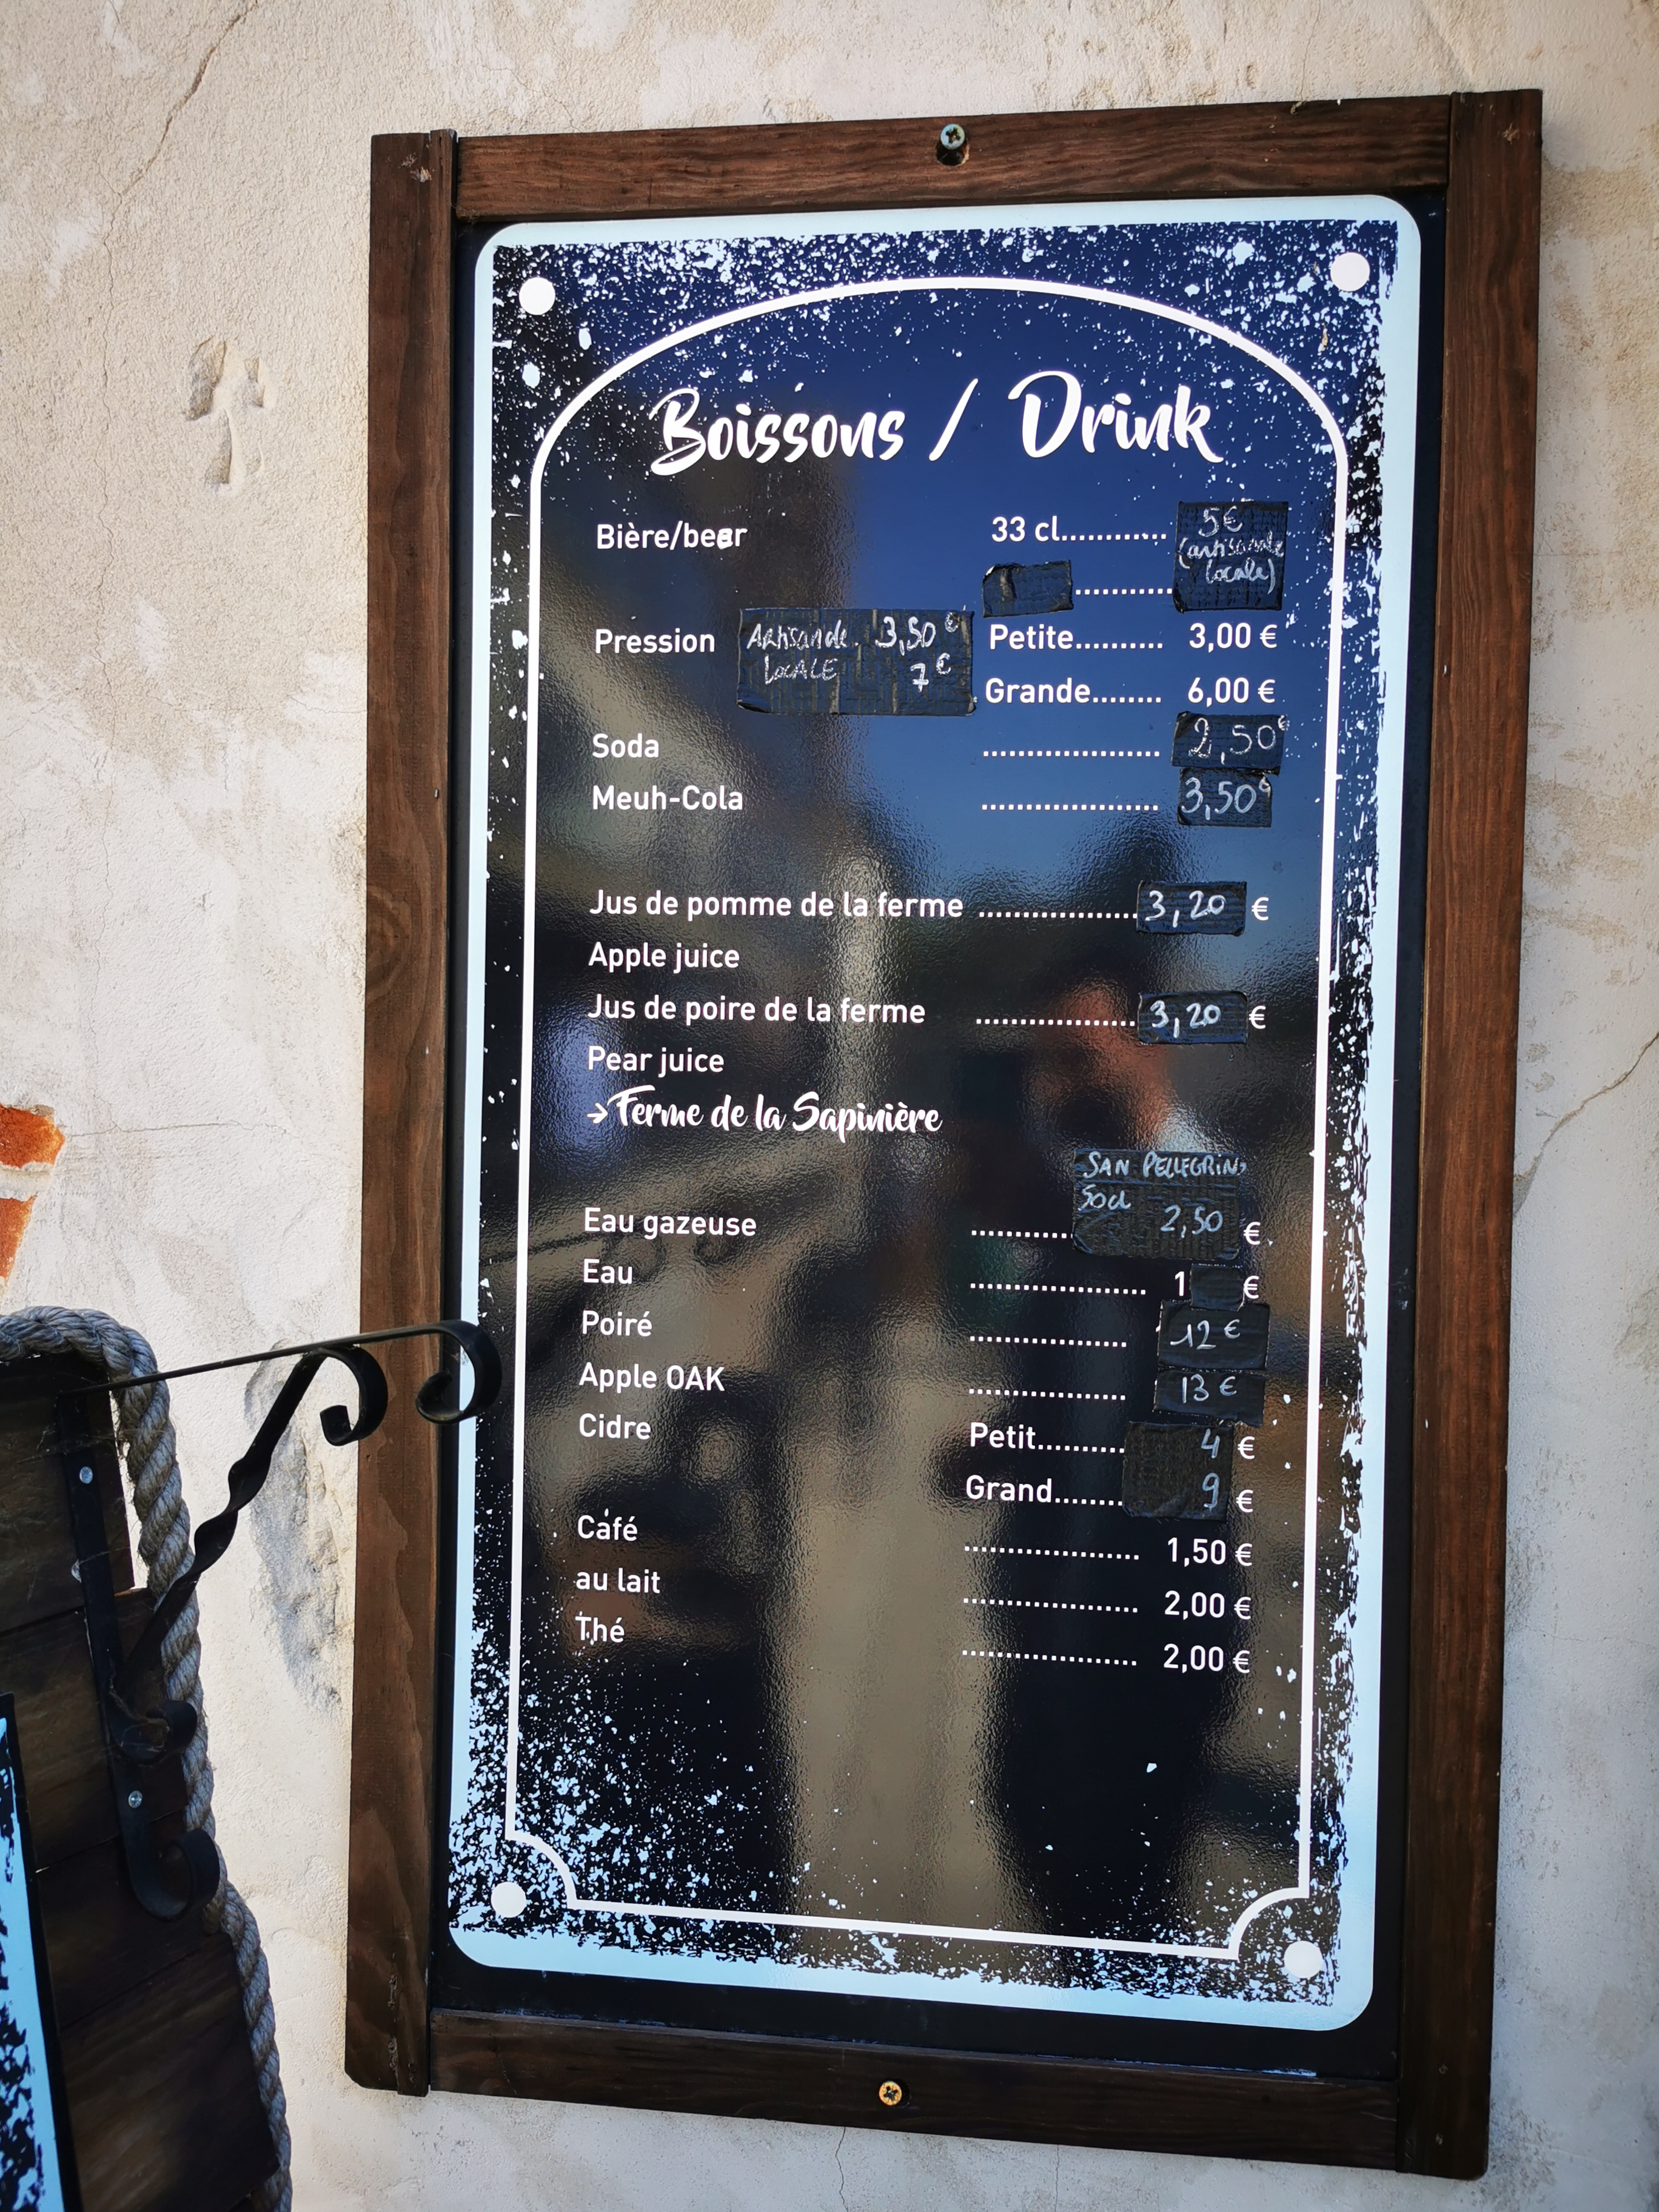 Boissons / Drink
Bière/beer 33 cl............ 5€
(artisanale
locale)
...........
Pression Artisanale 3,50 € Petite.......... 3,00 €
LOCALE 7 € Grande........ 6,00 €
Soda .................... 2,50 €
Meuh-Cola .................... 3,50 €
Jus de pomme de la ferme .................. 3,20 €
Apple juice
Jus de poire de la ferme .................. 3,20 €
Pear juice
→ Ferme de la Sapinière
SAN PELLEGRINO
50cl
Eau gazeuse ........... 2,50 €
Eau .................... 1 €
Poiré .................. 12 €
Apple OAK .................. 13 €
Cidre Petit.......... 4 €
Grand........ 9 €
Café .................... 1,50 €
au lait .................... 2,00 €
Thé .................... 2,00 €